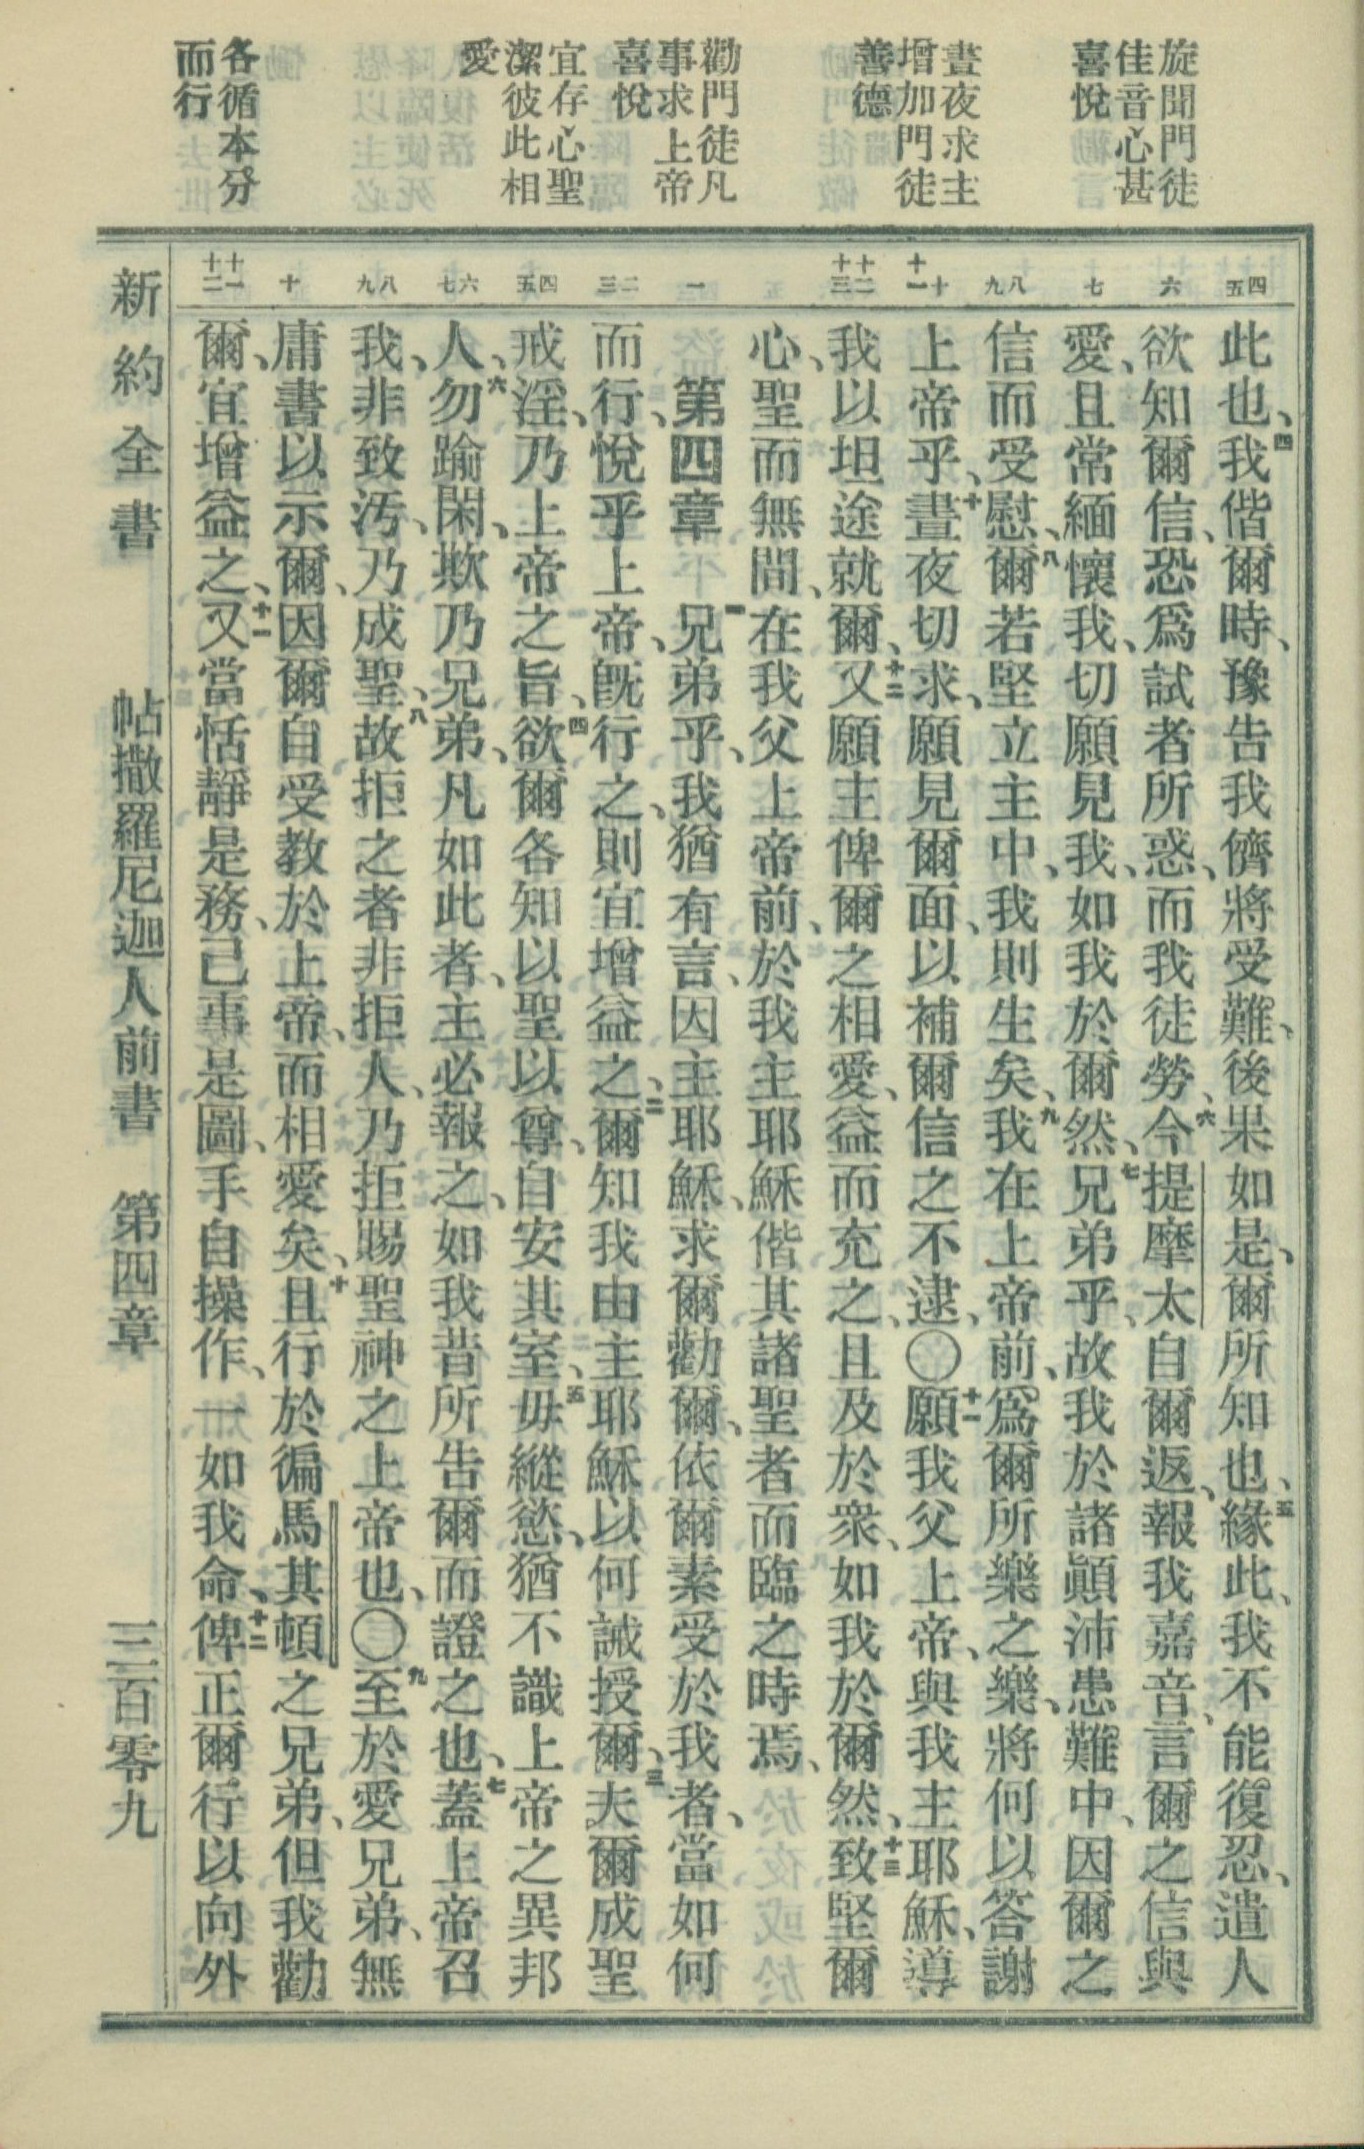 旋聞門徒
佳音心甚
喜悅
晝夜求主
增加門徒
善德
勸門徒凡
事求上帝
喜悅
宜存心聖
潔彼此相
愛
各循本分
而行
四五
六
七
八九
十十一
十二十三
一
二三
四五
六七
八九
十
十一十二
此也、四我偕爾時、豫告我儕將受難、後果如是、爾所知也、五緣此、我不能復忍、遣人
欲知爾信、恐爲試者所惑、而我徒勞、六今提摩太自爾返、報我嘉音、言爾之信與
愛、且常緬懷我、切願見我、如我於爾然、七兄弟乎、故我於諸顚沛患難中、因爾之
信而受慰、八爾若堅立主中、我則生矣、九我在上帝前、爲爾所樂之樂、將何以答謝
上帝乎、十晝夜切求、願見爾面、以補爾信之不逮、〇十一願我父上帝、與我主耶穌、導
我以坦途就爾、十二又願主俾爾之相愛、益而充之、且及於衆、如我於爾然、十三致堅爾
心、聖而無間、在我父上帝前、於我主耶穌偕其諸聖者而臨之時焉、
第四章 一兄弟乎、我猶有言、因主耶穌、求爾勸爾、依爾素受於我者、當如何
而行、悅乎上帝、既行之、則宜增益之、二爾知我由主耶穌、以何誡授爾、三夫爾成聖
戒淫、乃上帝之旨、四欲爾各知以聖以尊、自安其室、五毋縱慾、猶不識上帝之異邦
人、六勿踰閑、欺乃兄弟、凡如此者、主必報之、如我昔所告爾而證之也、七蓋上帝召
我、非致汚、乃成聖、八故拒之者、非拒人、乃拒賜聖神之上帝也、〇九至於愛兄弟、無
庸書以示爾、因爾自受教於上帝、而相愛矣、十且行於徧馬其頓之兄弟、但我勸
爾、宜增益之、十一又當恬靜是務、己事是圖、手自操作、一如我命、十二俾正爾行、以向外
新約全書 帖撒羅尼迦人前書 第四章 三百零九